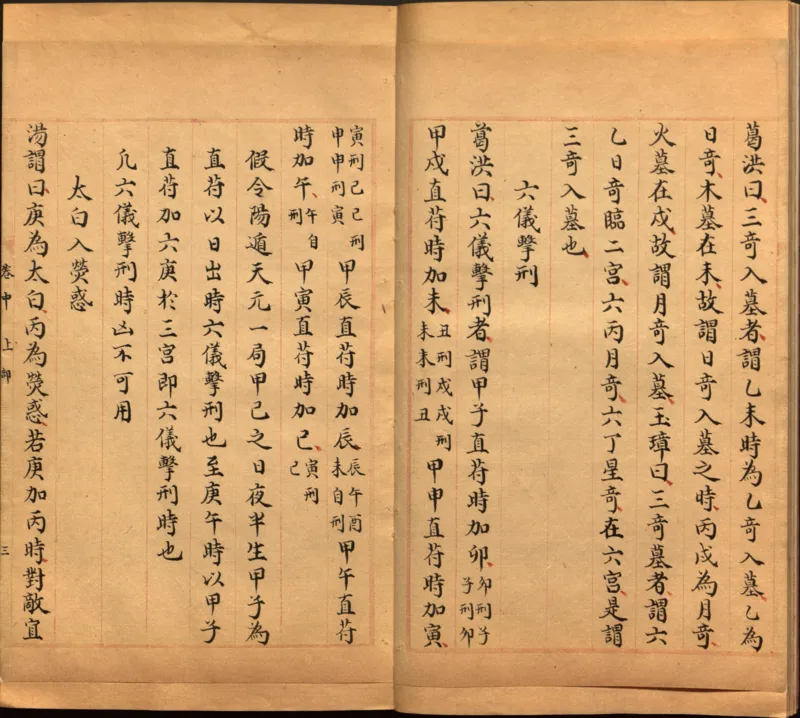 葛洪曰三奇入墓者謂乙未時為乙奇入墓乙為
日奇木墓在未故謂日奇入墓之時丙戌為月奇
火墓在戌故謂月奇入墓玉璋曰三奇墓者謂六
乙日奇臨二宮六丙月奇六丁星奇在六宮是謂
三奇入墓也
六儀擊刑
葛洪曰六儀擊刑者謂甲子直苻時加卯卯刑子子刑卯
甲戌直苻時加未丑刑戌戌刑未未刑丑甲申直苻時加寅
寅刑巳巳刑申申刑寅甲辰直苻時加辰辰午酉未自刑甲午直苻
時加午午自刑甲寅直苻時加巳寅刑巳
假令陽遁天元一局甲己之日夜半生甲子為
直苻以日出時六儀擊刑也至庚午時以甲子
直苻加六庚於三宮即六儀擊刑時也
凡六儀擊刑時凶不可用
太白入熒惑
湯謂曰庚為太白丙為熒惑若庚加丙時對敵宜
卷中上卸 三